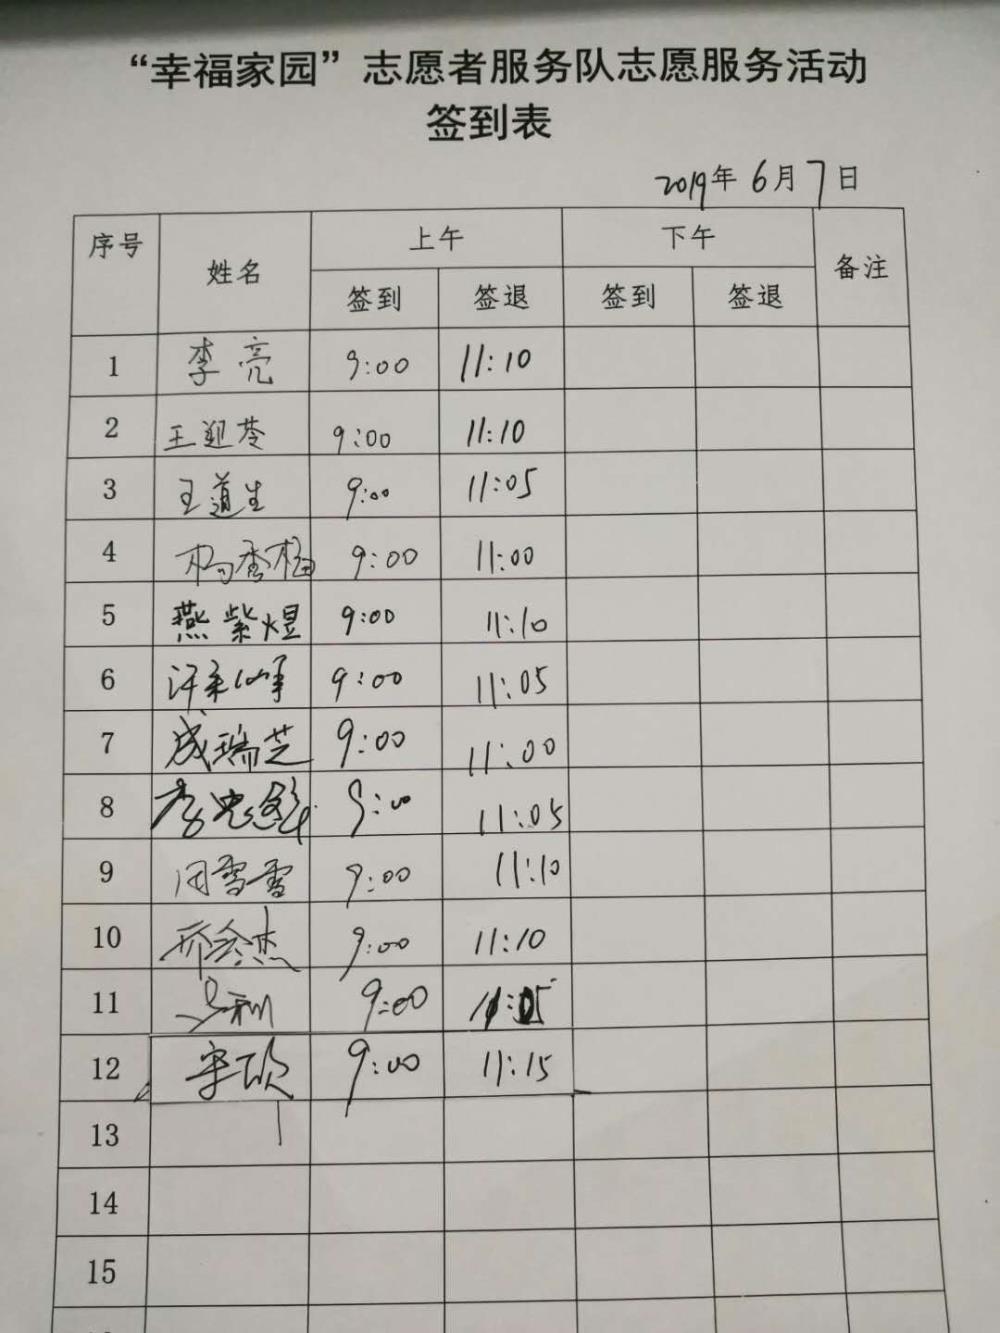 “幸福家园”志愿者服务队志愿服务活动
签到表
2019年6月7日
序号 姓名 上午 下午 备注
签到 签退 签到 签退
1 李亮 9:00 11:10
2 王迎苓 9:00 11:10
3 王道生 9:00 11:05
4 杨香梅 9:00 11:00
5 燕紫煜 9:00 11:10
6 9:00 11:05
7 成瑞芝 9:00 11:00
8 李 9:00 11:05
9 闫雪雪 9:00 11:10
10 杰 9:00 11:10
11 9:00 11:05
12 宋欣 9:00 11:15
13
14
15